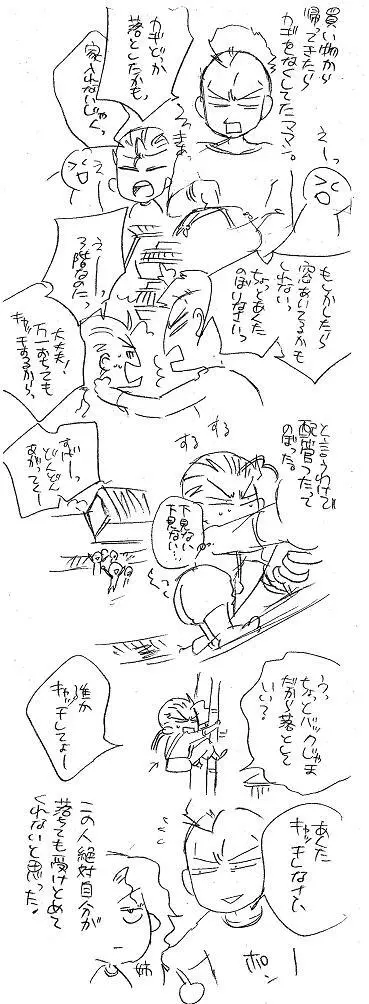 買い物から
帰ってきたら
カギをなくしてたママン。
カギどっか
落としたかも、
家入れないじゃん、
えーっ
えーっ
もしかしたら
窓あいてるかも
しれないっ
ちょっとあくた
のぼりなさいっ
えーっ
3階なのにっ
大丈夫!
万一おちても
キャッチするから、
と言うわけで
配管つたって
のぼった。
するする
すげーっ
どんどん
あがってくー
下見ない、
下見ない…!
うっ
ちょっとバックじゃま
だから落として
いい?
誰か
キャッチしてよー
あくた
キャッチしなさい、
ポーン
姉
この人絶対自分が
落ちても受けとめて
くれないと思った。